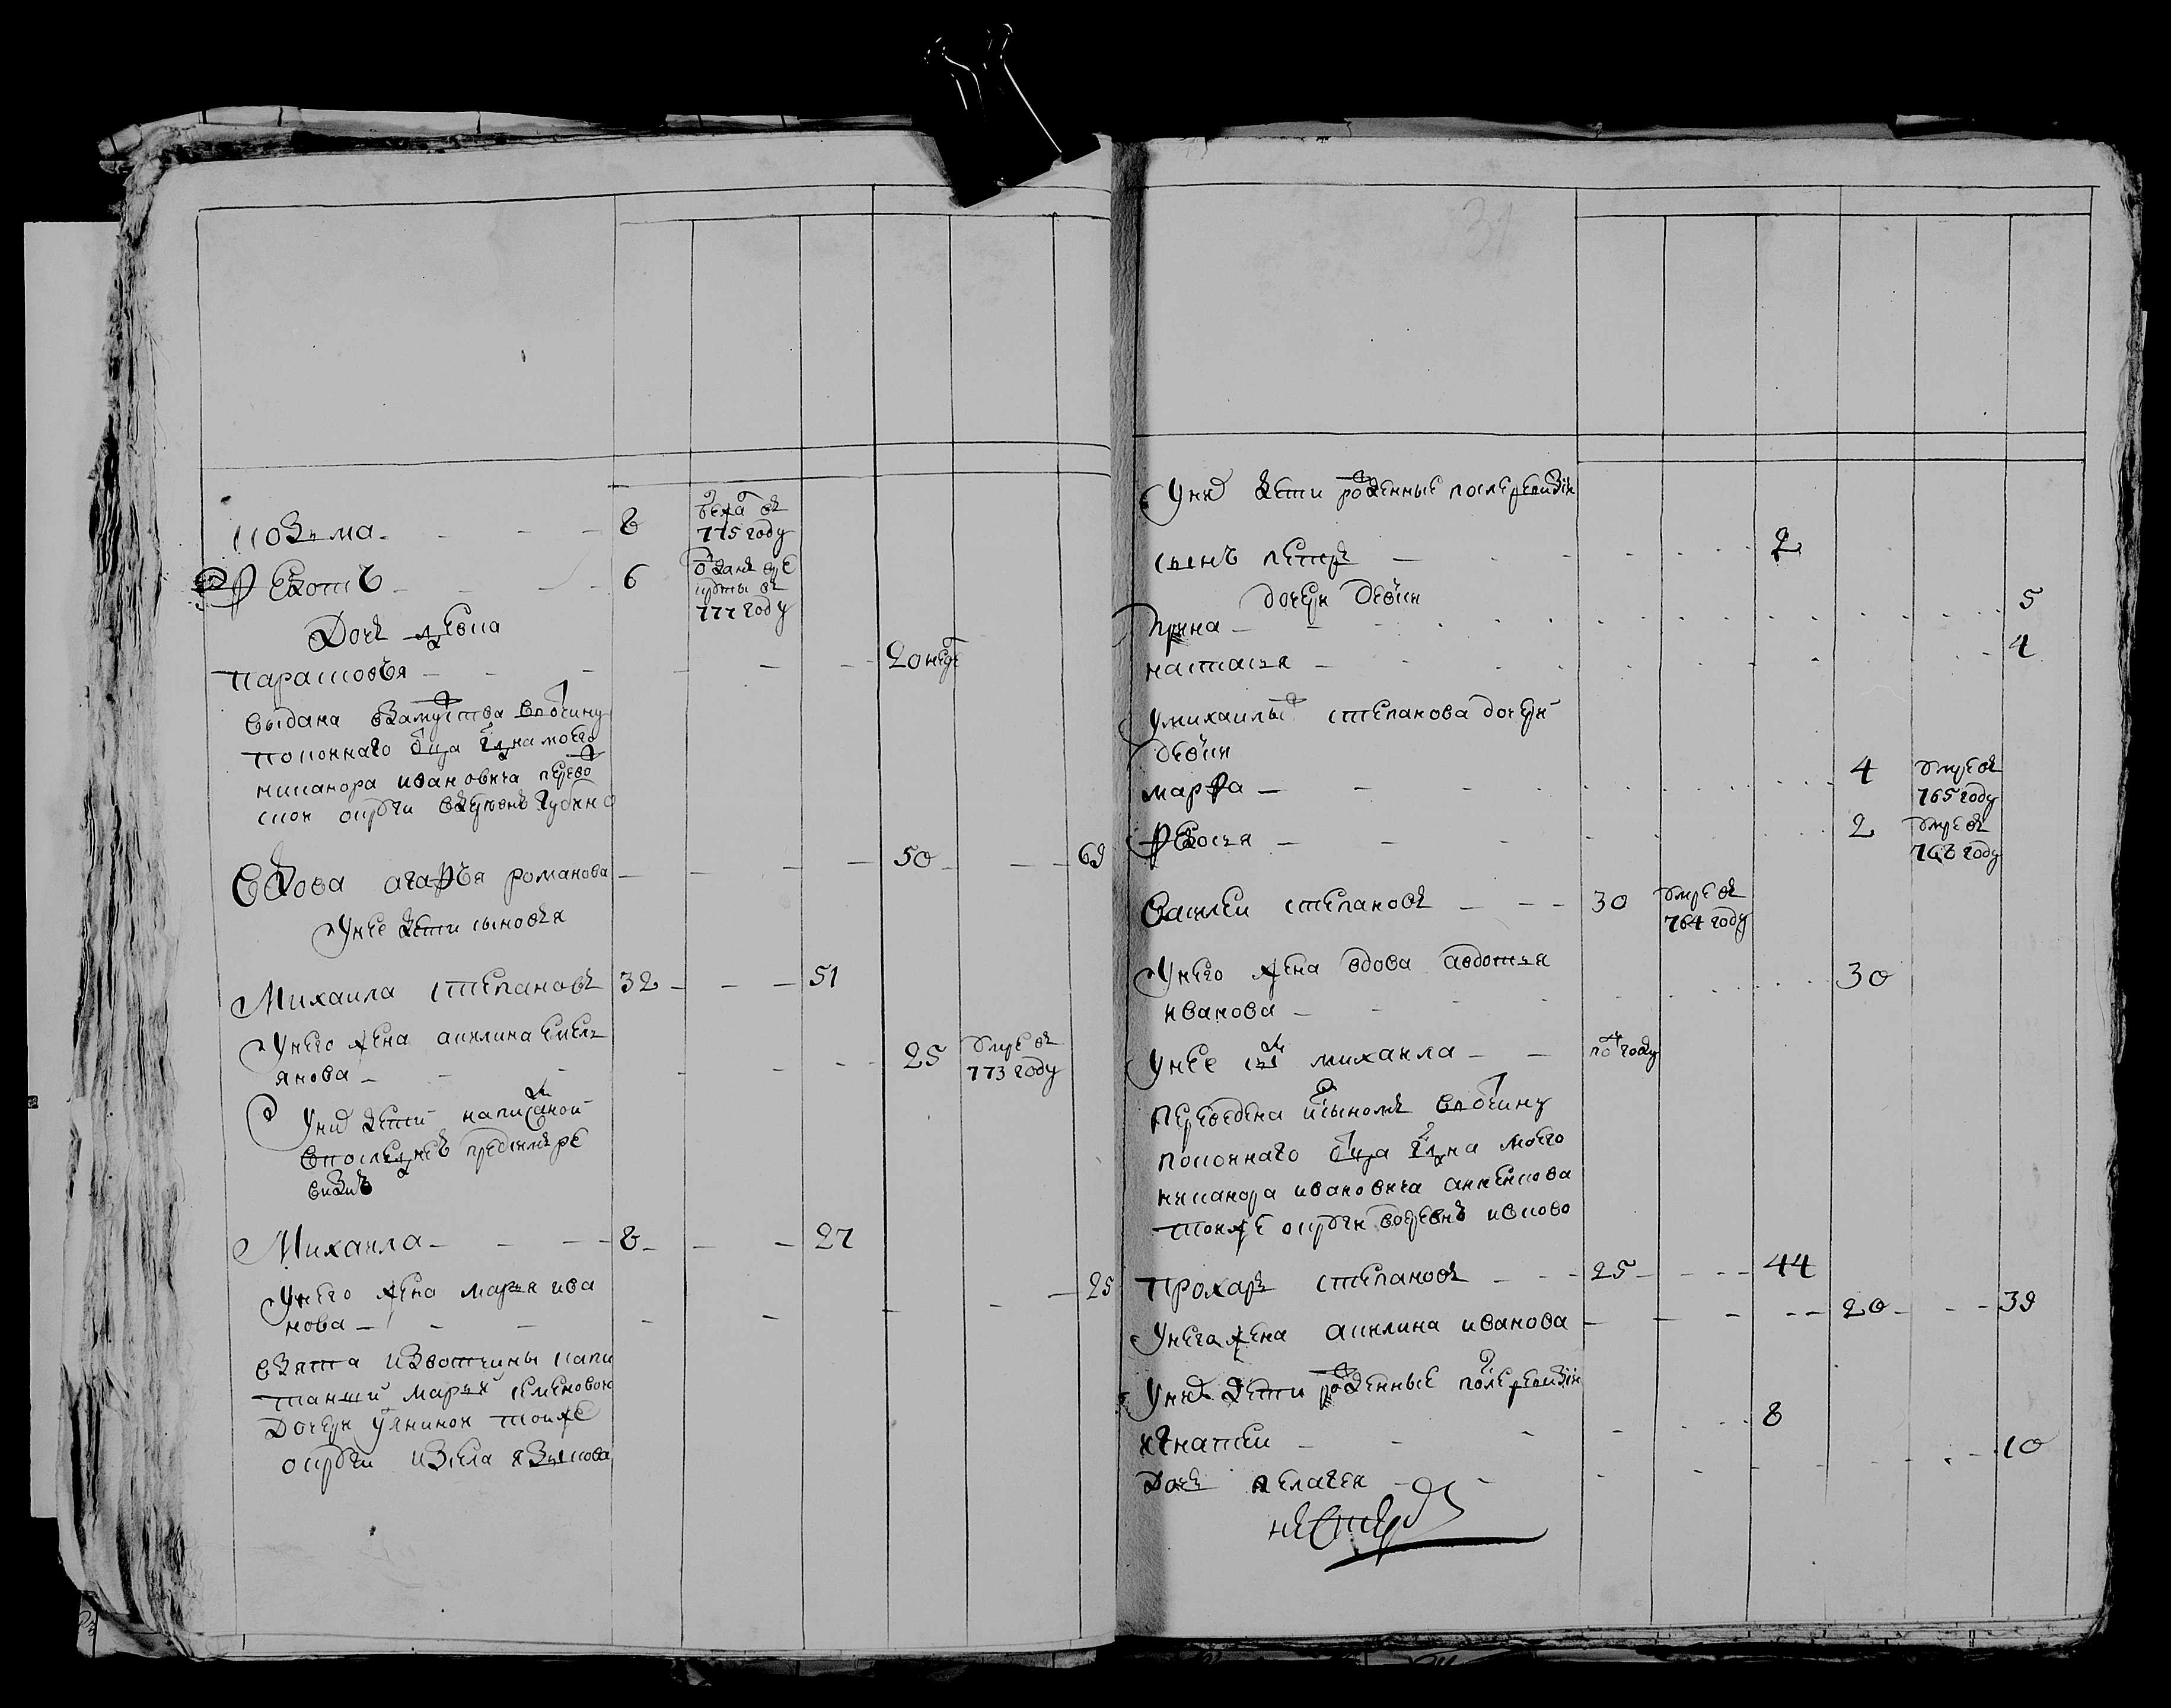 козма - - - 8 бежалъ въ 775 году
Федотъ - - - 6 отданъ врекруты въ 777 году
Дочь девка
парасковья - - - - - 20 нед
выдана взамужства ввотчину
покойнаго отца гдна моего
никанора ивановича перево
ской округи
вдова агафья романова - - - - 50 - - 69
унее дети сыновья
Михаила степановъ 32 - - - 51
Унего жена акилина емель
янова - - - - - - 25 умре въ 773 году
Унихъ дети написаной
впоследней предсимъ ре
визиѣ
Михаила - - - - 8 - - - 27
Унего жена марья ива
нова - - - - - - - - - 25
взята извотчины капи
танши марьи семеновой
дочери ульниной тойже
округи изсела языкова
31
Унихъ дети рожденные послеревизiи
сынъ петръ - - - - - - 2
дочери девки
ирина - - - - - - - 5
настасья - - - - - - 4
умихаилы степанова дочери
девки
марфа - - - - - - 4 умре въ 765 году
федосья - - - - - 2 умре въ 768 году
Василей степановъ - - - 30 умре въ 764 году
Унего жена вдова авдотья
иванова - - - - - - 30
Унее сынъ михаила - - полгоду
переведена исыномъ ввотчину
покойнаго отца гдна моего
никанора ивановича аненкова
тойже округи вдеревню ивково
прохаръ степановъ - - - 25 - - - - 44
Унего жена акилина иванова - - - - - 20 - - - 39
Унихъ дети рожденные послеревизiи
игнатей - - - - - - 8
Дочь пелагея - - - - - - - 10